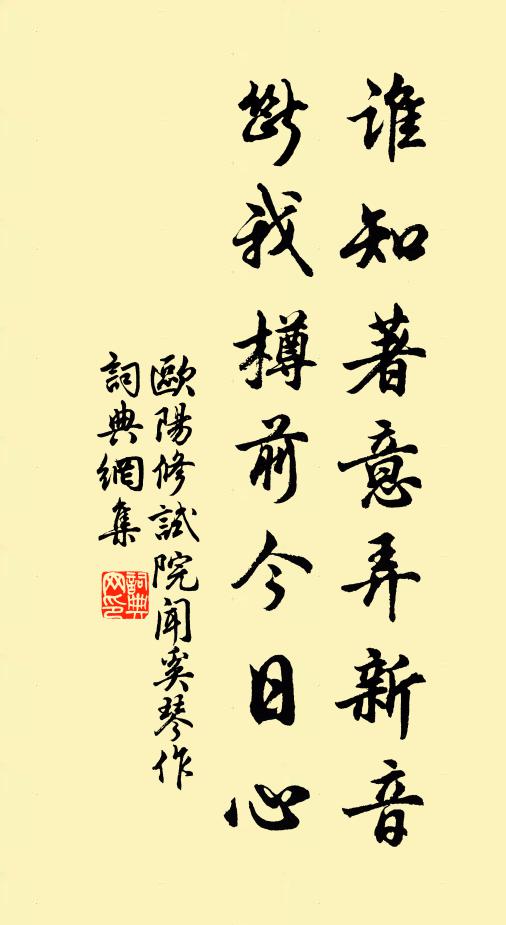 誰知著意弄新音
斷我樽前今日心
歐陽修試院聞奚琴作
詞典網集
詞典网印